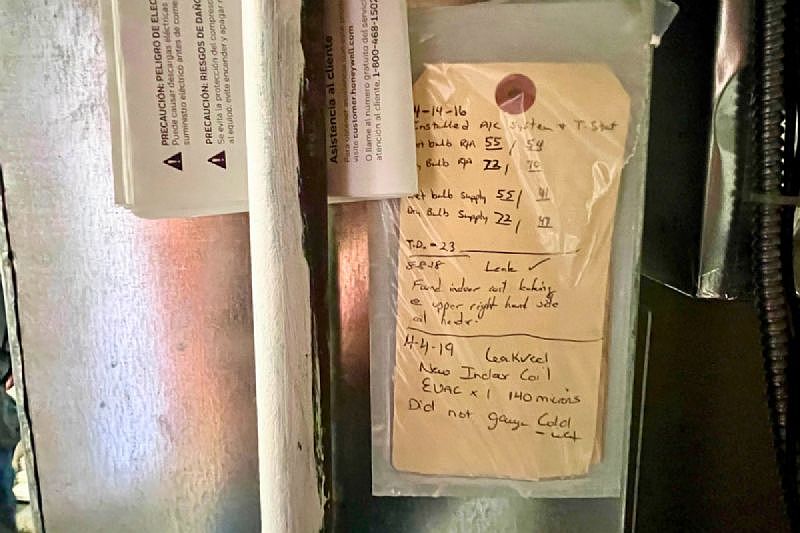 PRECAUCIÓN: PELIGRO DE ELEC
Puede causar descargas eléctricas
suministro eléctrico antes de come
PRECAUCIÓN: RIESGOS DE DAÑO
Se evita la protección del compreso
al equipo; evite encender y apagar
Asistencia al cliente
visite customer.honeywell.com
O llame al número gratuito del servicio
atención al cliente 1-800-468-1502
4-14-16
Installed A/C System + T-Stat
bulb R/A 55 / 54
Bulb R/A 72 /
wet bulb Supply 55 / 41
Dry Bulb Supply 72 /
T.D. = 23
8-8-18 Leak ✓
Found indoor coil leaking
@ upper right hand side
coil header.
4-4-19
New Indoor Coil
EVAC x 1 140 microns
Did not gauge Cold